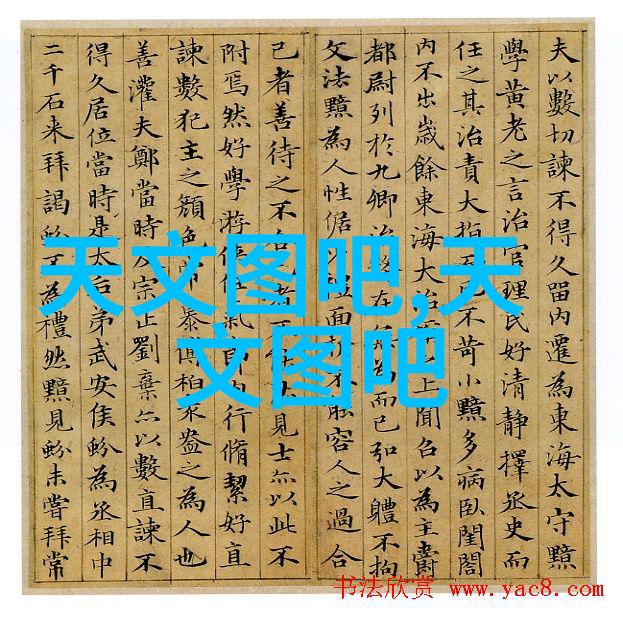 夫以數切諫不得久留內遷為東海太守黯
學黃老之言治官理民好清靜擇丞史而
任之其治責大指不苛小黯多病臥閨閤
內不出歲餘東海大治上聞召以為主爵
都尉列於九卿治在為而已弘大體不拘
文法黯為人性倨面折不能容人之過合
己者善待之不合者見士亦以此不
附焉然好學游俠氣內行脩絜好直
諫數犯主之顏色常慕傅柏袁盎之為人也
善灌夫鄭當時及宗正劉棄亦以數直諫不
得久居位當時是太后弟武安侯蚡為丞相中
二千石来拜謁蚡不為禮然黯見蚡未嘗拜常
天文图吧,天
文图吧
书法欣赏 www.yac8.com